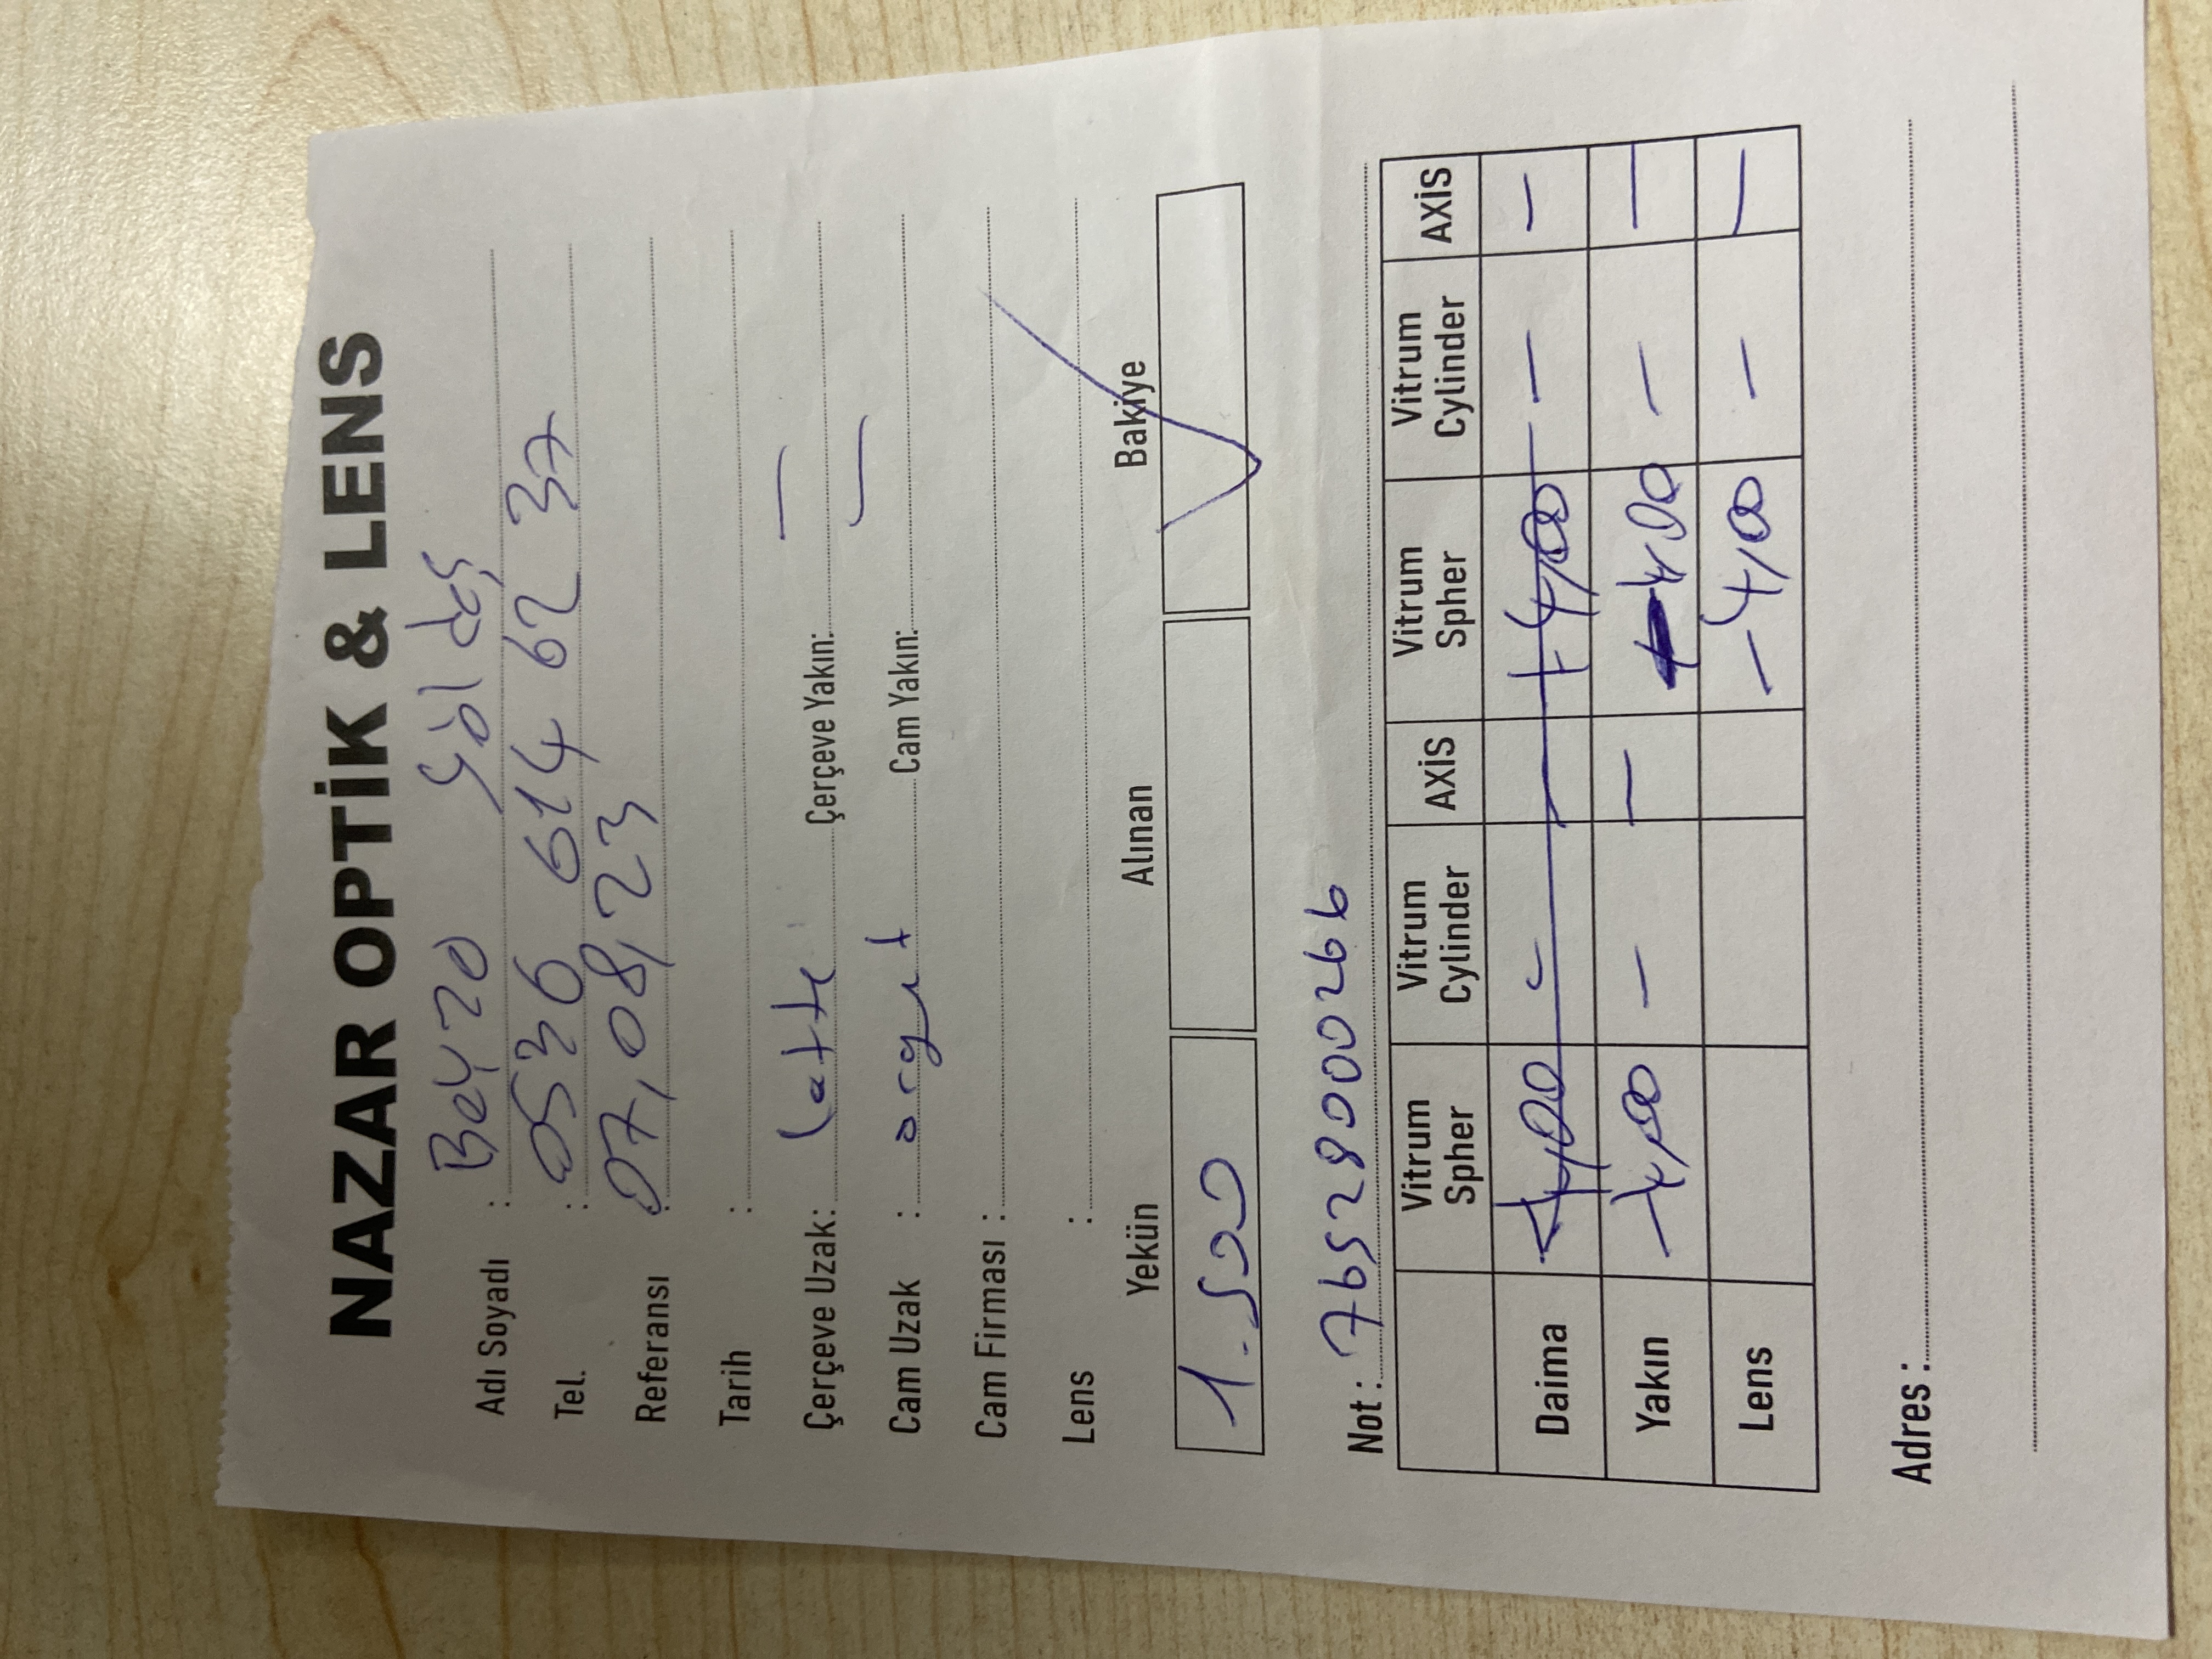 NAZAR OPTİK & LENS
Adı Soyadı : Beyza
Tel. : 0536 614 62 37
Referansı : 07,08,23
Tarih :
Çerçeve Uzak: latte Çerçeve Yakın: —
Cam Uzak : Cam Yakın: —
Cam Firması :
Lens :
Yekün Alınan Bakiye
1.500 ✓
Not : 76528000266
Vitrum Spher Vitrum Cylinder AXİS Vitrum Spher Vitrum Cylinder AXİS
Daima 4,00 – — +4,00 — —
Yakın -4,00 — — 4,00 — —
Lens -4,00 — —
Adres :